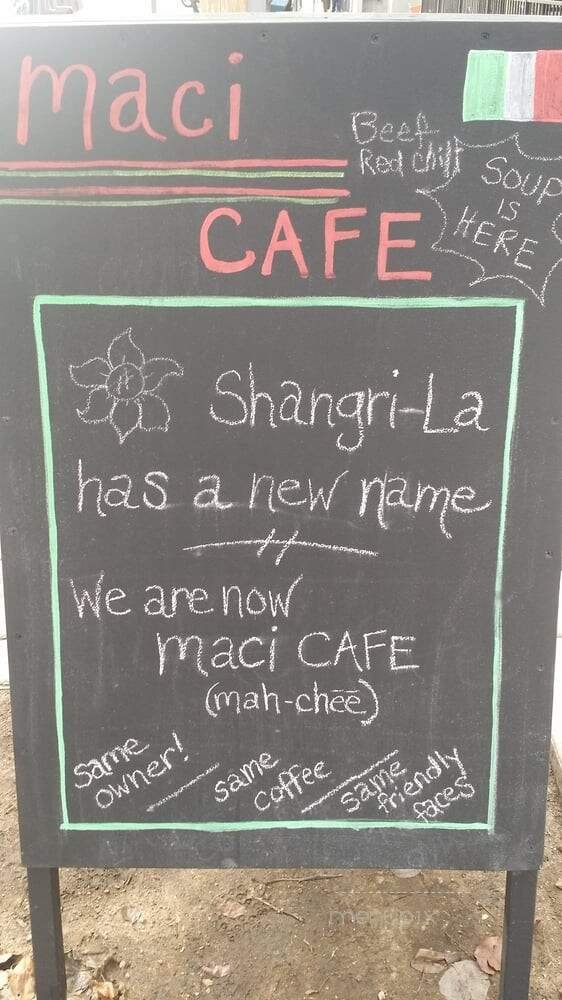 maci
CAFE
Beef
Red chili
SOUP
IS
HERE
Shangri-La
has a new name
We are now
maci CAFE
(mah-chēē)
same
owner!
same
coffee
same
friendly
faces
menupix